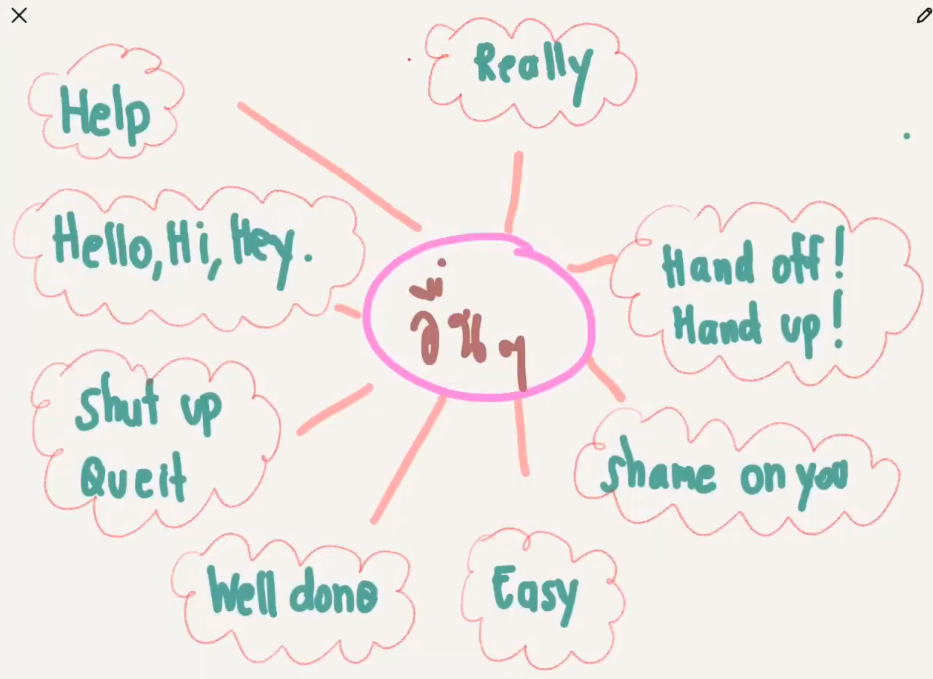 Help
Really
Hello, Hi, Hey.
Hand off!
Hand up!
อื่นๆ
Shut up
Queit
Shame on you
Well done
Easy